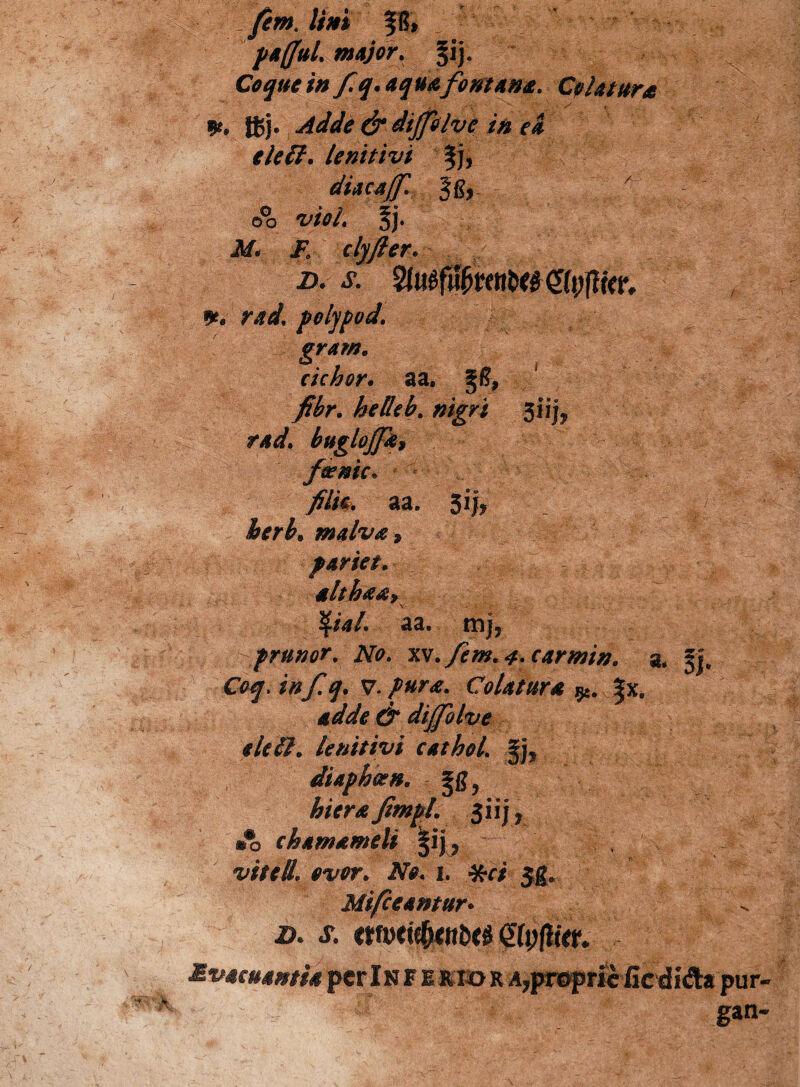 sem. lini ℥ß,
passul. major. ℥ij.
Coque in s. q. aqua fontanæ. Colaturæ
℞. ℔j. Adde & dissolve in eâ
elect. lenitivi ℥j,
diacass. ℥ß,
o°o viol. ℥j.
M. F. clyster.
D. S. Außführendes Clystier.
℞. rad. polypod.
gram.
cichor. aa. ℥ß,
fibr. helleb. nigri ʒiij,
rad. buglossæ,
fœnic.
filic. aa. ʒij,
herb. malvæ,
pariet.
althææ,
☿ial. aa. mj,
prunor. No. xv. sem. 4. carmin. a. ℥j.
Coq. in s. q. ▽. puræ. Colaturæ ℞. ℥x.
adde & dissolve
elect. lenitivi cathol. ℥j,
diaphœn. ℥ß,
hieræ simpl. ʒiij,
o°o chamæmeli ℥ij,
vitell. ovor. No. 1. ✳ci ʒß.
Misceantur.
D. S. erweichendes Clystier.
Evacuantia per INFERIORA, propriè sic dicta pur-
gan-